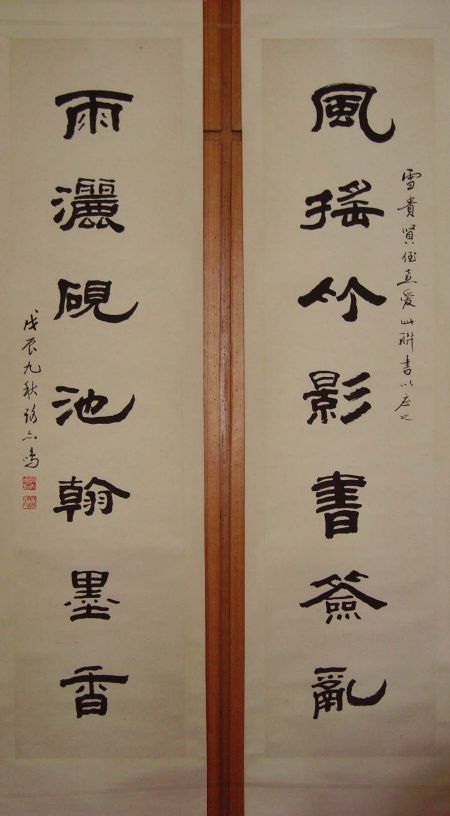 雪貴賢侄喜愛此聯書以应之
風搖竹影書簽亂
雨灑硯池翰墨香
戊辰九秋